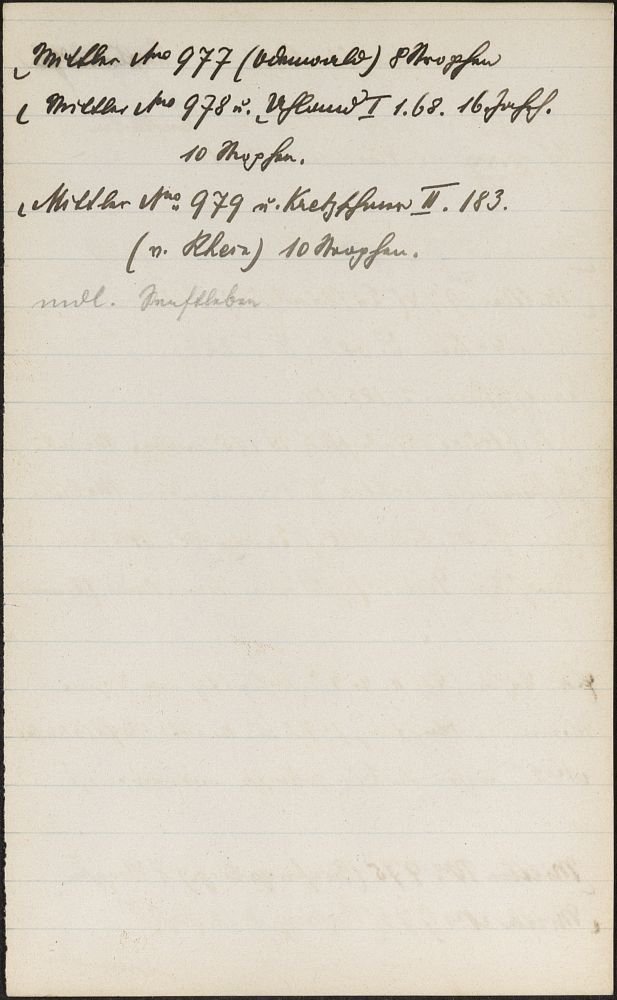 Mittler No 977 (Odenwald) 8 Strophen
Mittler No 978 u. Uhland I 1.68. 16. Jahrh.
10 Strophen.
Mittler No 979 u. Kretzschmer II. 183.
(v. Rhein) 10 Strophen.
mdl. Senftleben